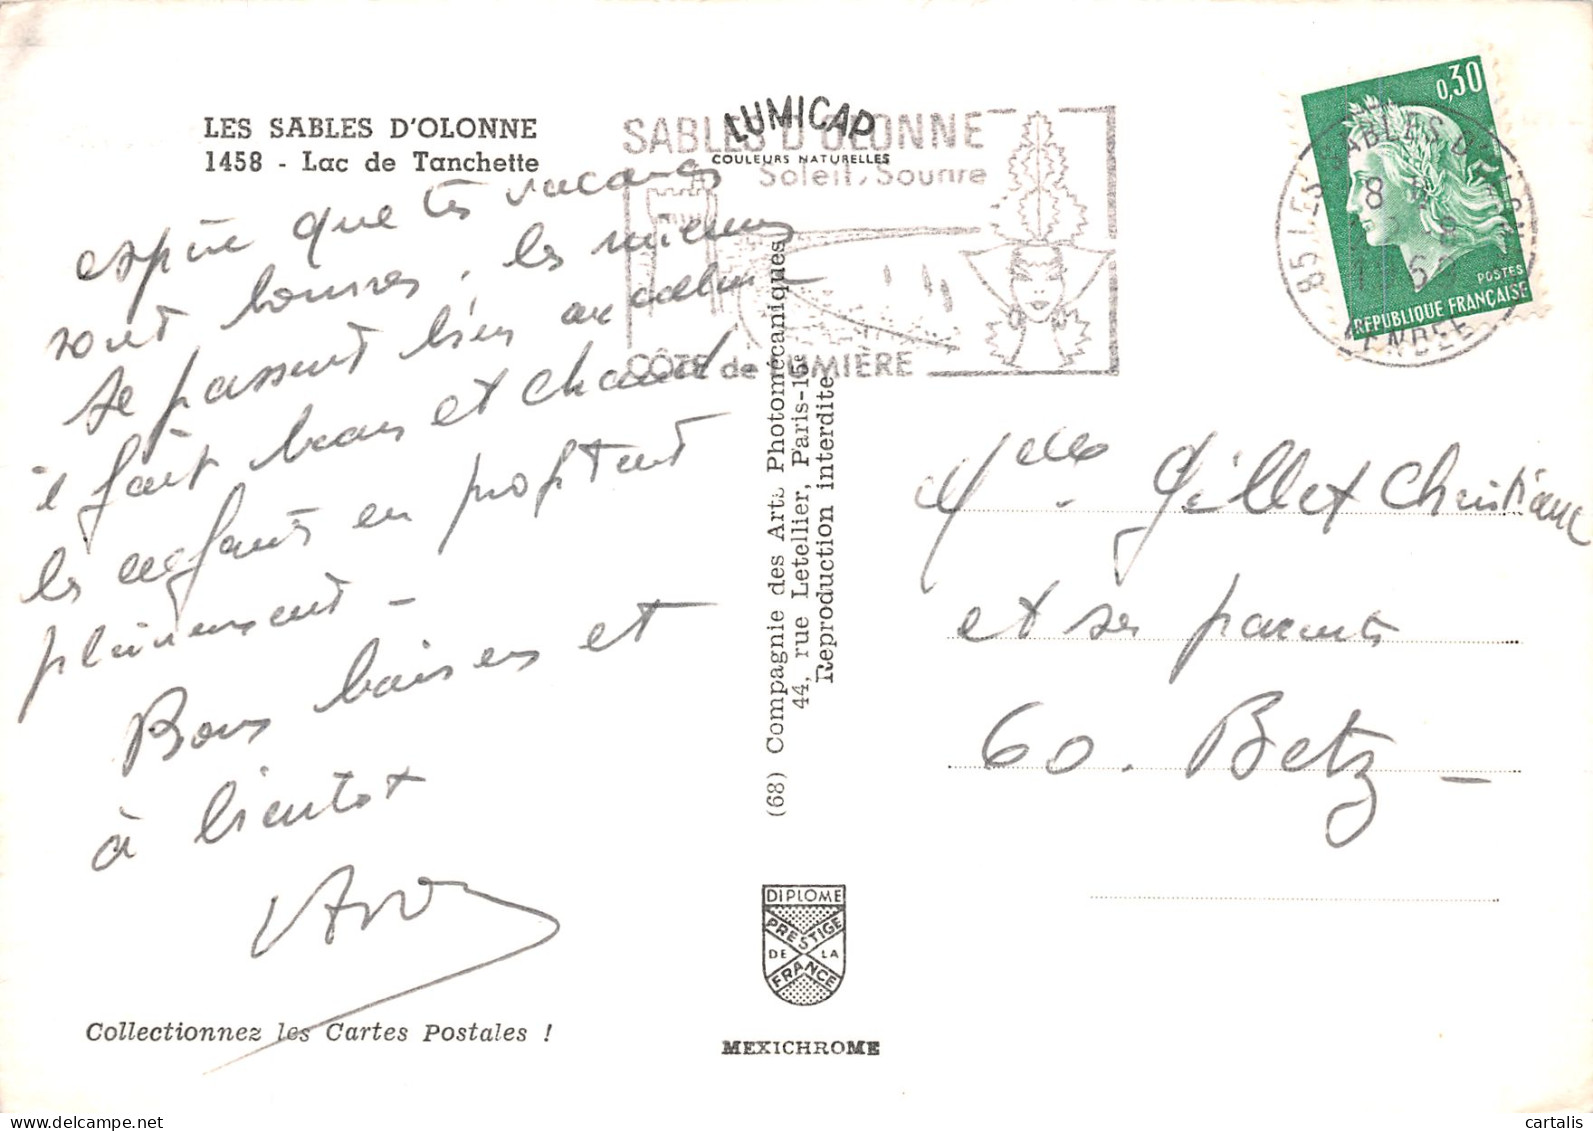 LES SABLES D'OLONNE
1458 - Lac de Tanchette
espère que tes vacances
sont bonnes, les miennes
se passent bien au calme -
il fait beau et chaud
les enfants en profitent
pleinement -
Bons baisers et
à bientot
Collectionnez les Cartes Postales !
LUMICAP
COULEURS NATURELLES
SABLES D'OLONNE
Soleil, Sourire
CÔTE de LUMIÈRE
(68) Compagnie des Arts Photomécaniques
44, rue Letellier, Paris-15e
Reproduction interdite
DIPLOME
PRESTIGE
DE LA
FRANCE
MEXICHROME
0,30
POSTES
REPUBLIQUE FRANÇAISE
85 LES SABLES D'OLONNE
VENDEE
Melle Gillet Christiane
et ses parents
60. Betz -
cartalis